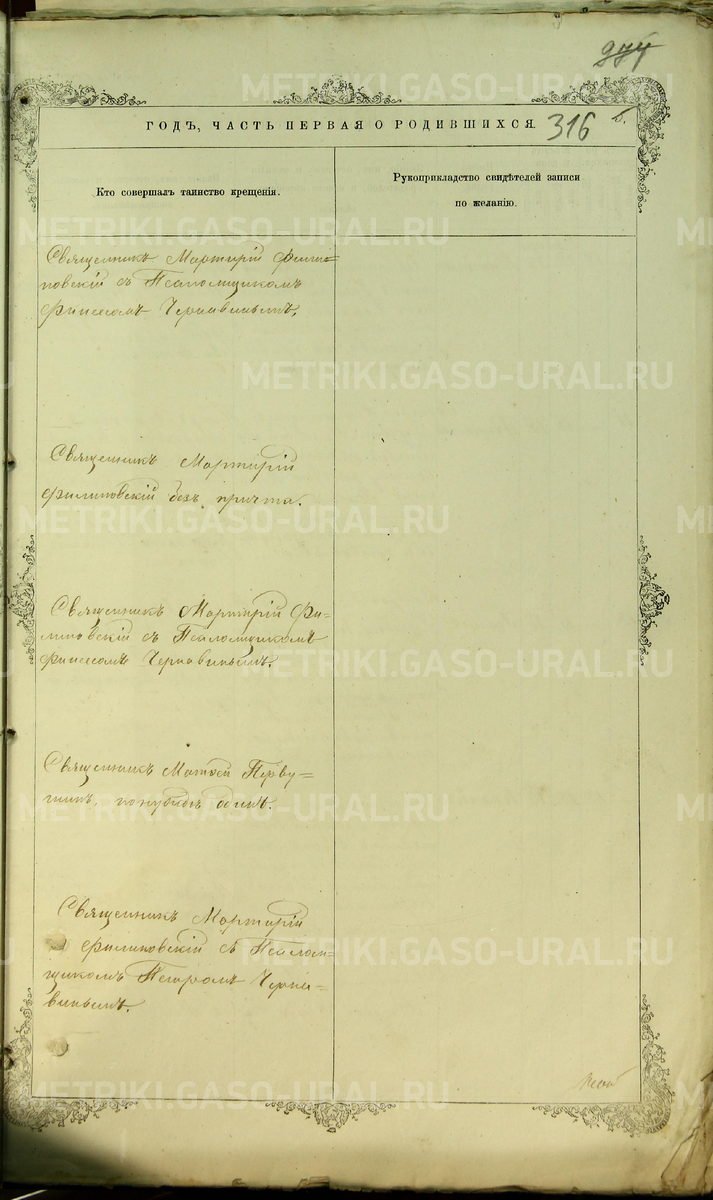 316
ГОДЪ, ЧАСТЬ ПЕРВАЯ О РОДИВШИХСЯ.
Кто совершалъ таинство крещенія.
Рукоприкладство свидѣтелей записи
по желанію.
Священникъ Мартирій Фили=
повскій съ Псаломщикомъ
Финеесомъ Чернавинымъ.
Священникъ Мартирій
Филиповскій безъ причта.
Священникъ Мартирій Фи=
липовскій съ Псаломщикомъ
Финеесомъ Чернавинымъ.
Священникъ Матѳей Перву=
шинъ, одинъ.
Священникъ Мартирій
Филиповскій съ Псалом=
щикомъ Петромъ Черна=
винымъ.
METRIKI.GASO-URAL.RU